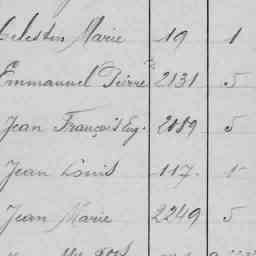 Celestin Marie 19 1
Emmanuel Pierre 2131 5
Jean François Eug. 2089 5
Jean Louis 117. 1
Jean Marie 2249 5